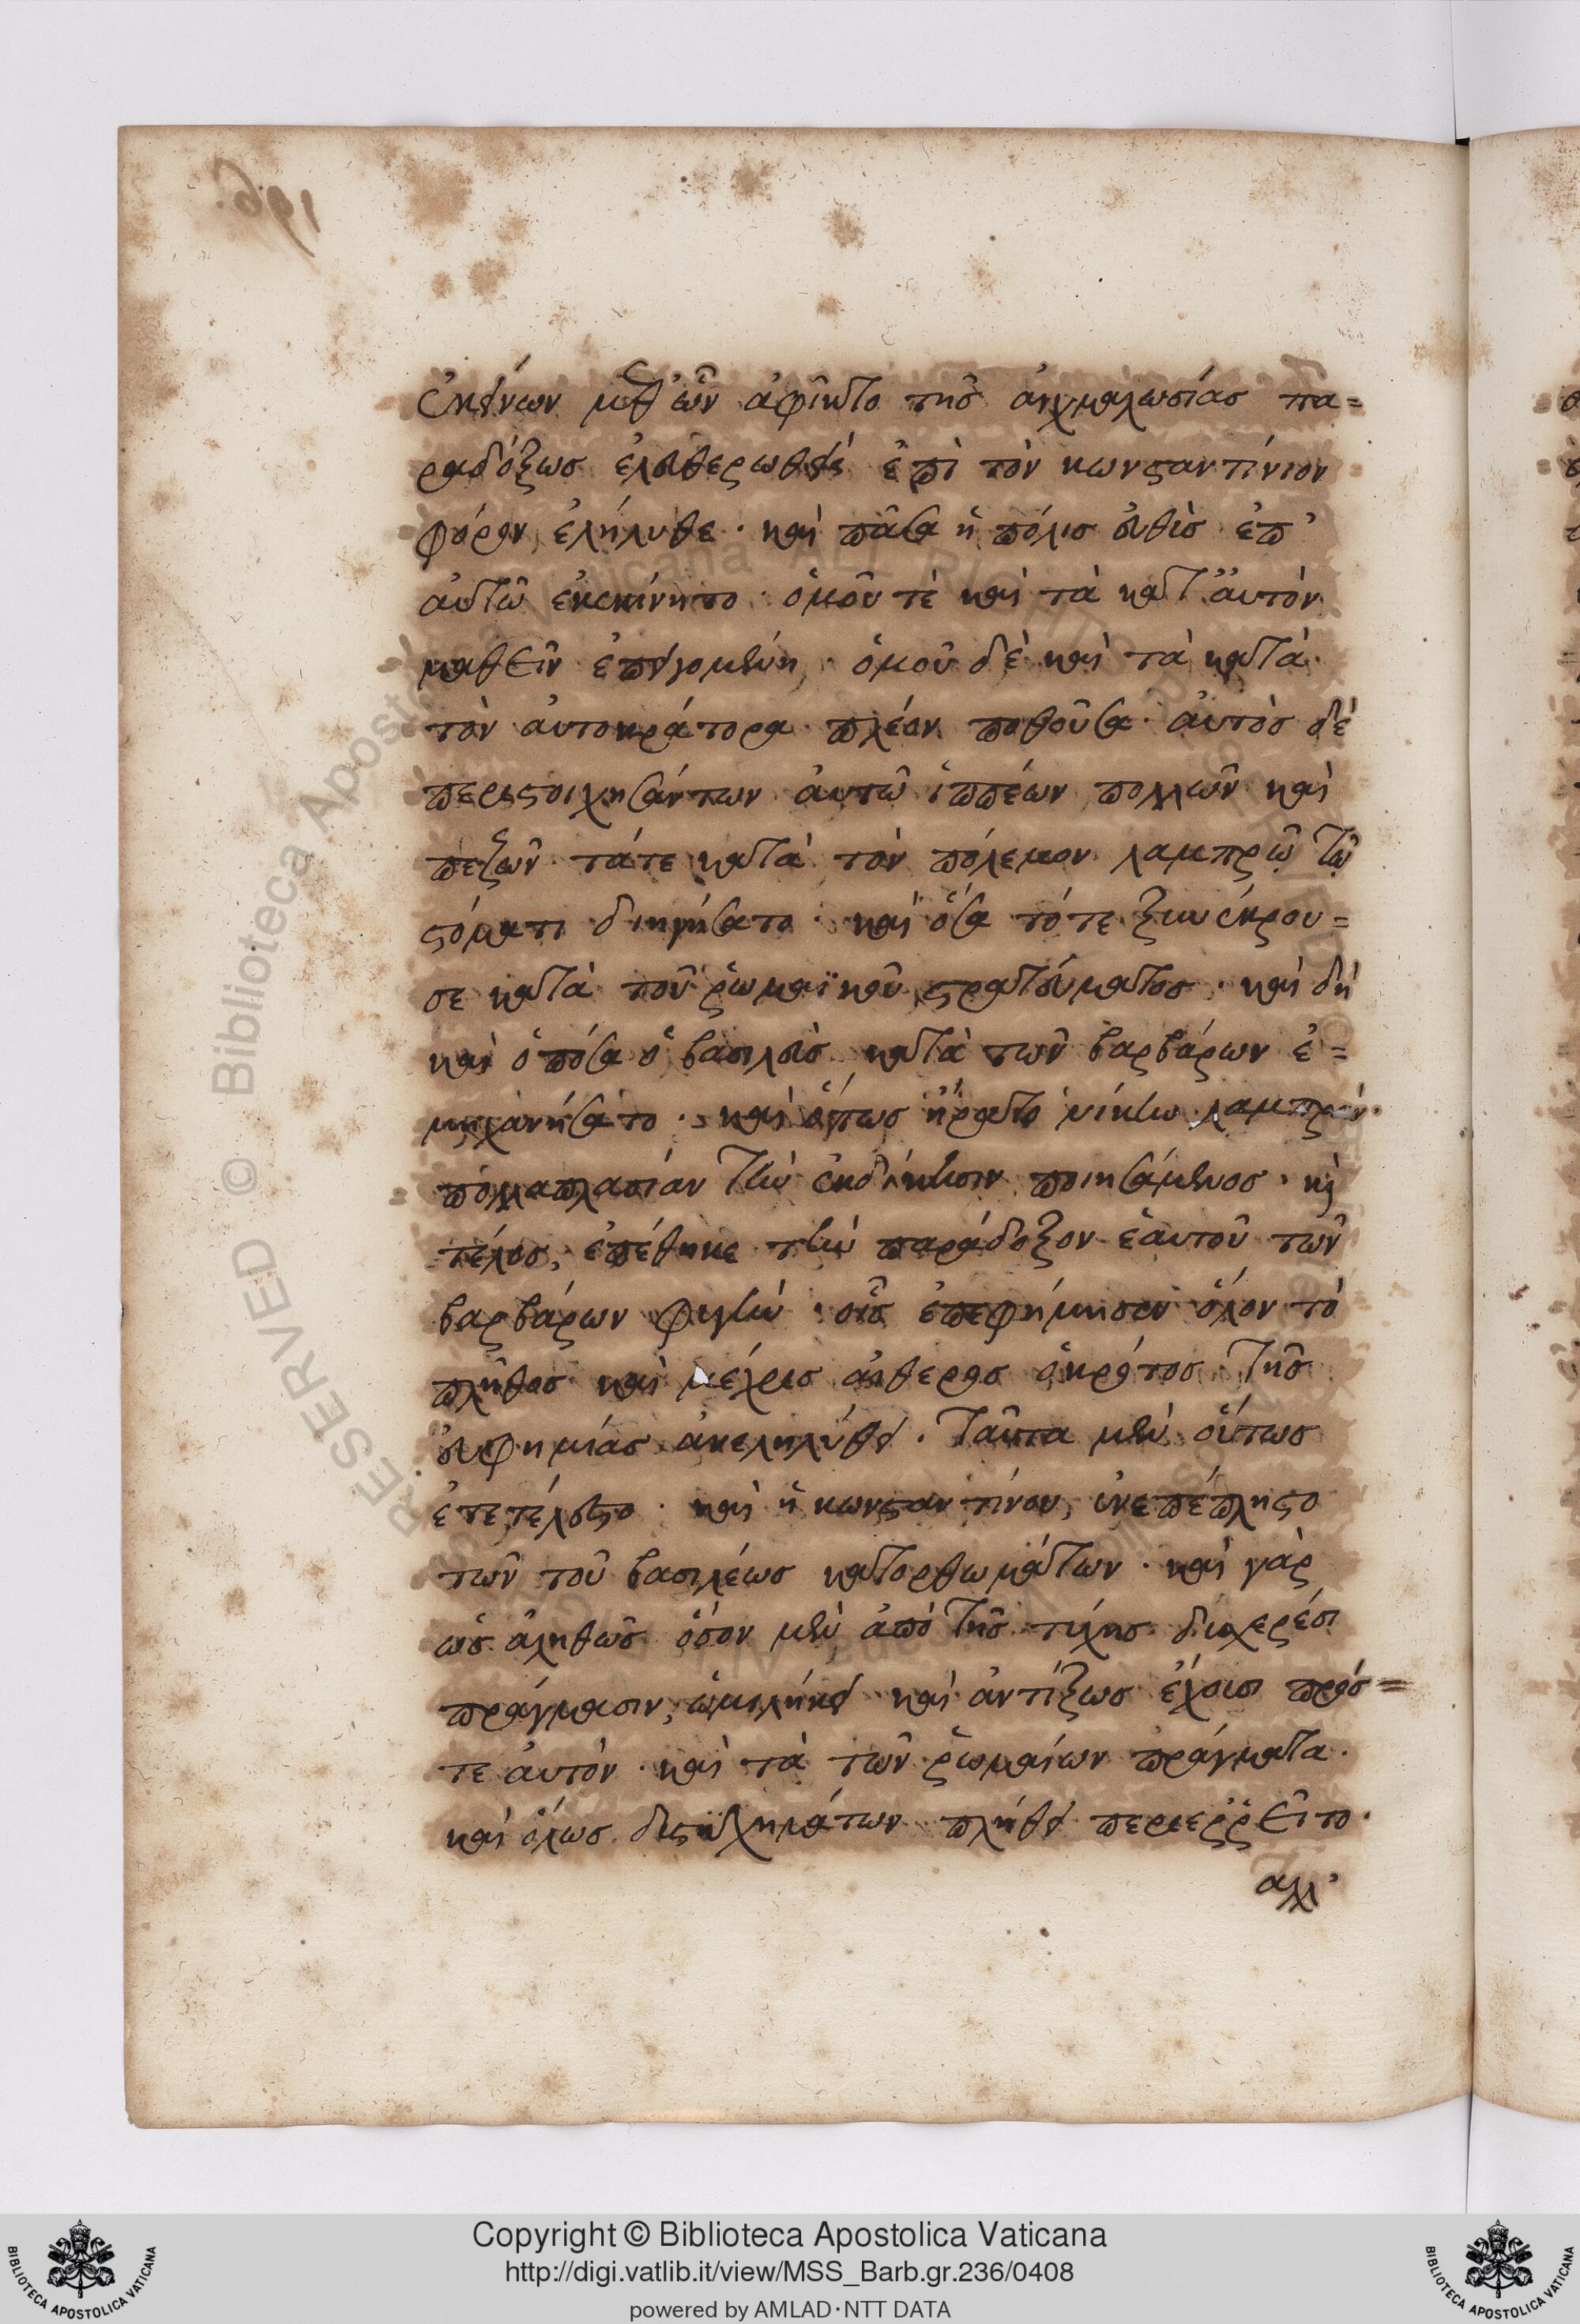 ἐκείνων μεθ' ὧν ἀφῖκτο τῆς αἰχμαλωσίας πα=
ραδόξως ἐλευθερωθεὶς ἐπὶ τὸν κωνσταντίνιον
φόρον ἐλήλυθε· καὶ πᾶσα ἡ πόλις εὐθὺς ἐπ'
αὐτῶ ἐκεκίνητο· ὁμοῦ τὲ καὶ τὰ κατ' αὐτὸν
μαθεῖν ἐπειγομένη, ὁμοῦ δὲ καὶ τὰ κατὰ
τὸν αὐτοκράτορα πλέον ποθοῦσα· αὐτὸς δὲ
περιστοιχησάντων αὐτῶ ἱππέων πολλῶν καὶ
πεζῶν τά τε κατὰ τὸν πόλεμον λαμπρῷ τῷ
στόματι διηγήσατο· καὶ ὅσα τότε ξυνέκρου=
σε κατὰ τοῦ ῥωμαϊκοῦ στρατεύματος· καὶ δὴ
καὶ ὁπόσα ὁ βασιλεὺς κατὰ τῶν βαρβάρων ἐ=
μηχανήσατο· καὶ ὅπως ἤρατο νίκην λαμπρὰν·
πολλαπλασίαν τὴν ἐκδίκησιν ποιησάμενος· κὶ
τέλος, ἐπέθηκε τὴν παράδοξον ἑαυτοῦ τῶν
βαρβάρων φυγὴν· οἷς ἐπεφήμησεν ὅλον τὸ
πλῆθος καὶ μέχρις αἰθέρος ὁ κρότος τῆς
εὐφημίας ἀνεληλύθει. Ταῦτα μὲν οὕτως
ἐτετέλεστο· καὶ ἡ κωνσταντίνου, ἐνεπέπληστο
τῶν τοῦ βασιλέως κατορθωμάτων· καὶ γὰρ
ὡς ἀληθῶς ὅσον μὲν ἀπὸ τῆς τύχης δυσχερέσι
πράγμασιν, ὡμιλήκει καὶ ἀντίξως ἔχουσι πρός=
τε αὐτὸν· καὶ τὰ τῶν ῥωμαίων πράγματα·
καὶ ὅλως δυστυχημάτων πλήθει περιεῤῥεῖτο·
ἀλλ'
Copyright © Biblioteca Apostolica Vaticana
http://digi.vatlib.it/view/MSS_Barb.gr.236/0408
powered by AMLAD·NTT DATA